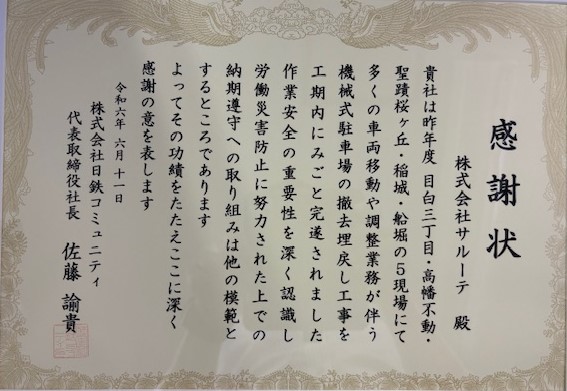 感謝状
株式会社サルーテ 殿
貴社は昨年度 目白三丁目・高幡不動・
聖蹟桜ヶ丘・稲城・船堀の５現場にて
多くの車両移動や調整業務が伴う
機械式駐車場の撤去埋戻し工事を
工期内にみごと完遂されました
作業安全の重要性を深く認識し
労働災害防止に努力された上での
納期遵守への取り組みは他の模範と
するところであります
よってその功績をたたえここに深く
感謝の意を表します
令和六年 六月 十一日
株式会社日鉄コミュニティ
代表取締役社長 佐藤 諭貴